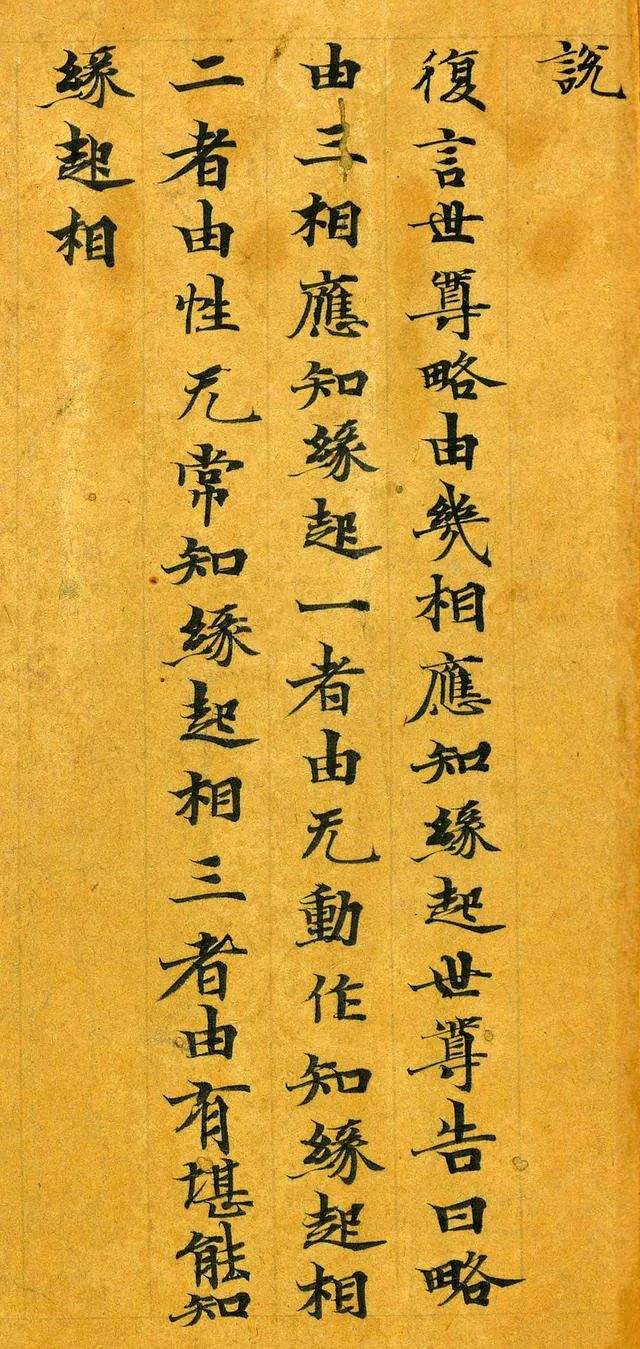 說
復言世尊略由幾相應知緣起世尊告曰略
由三相應知緣起一者由无動作知緣起相
二者由性无常知緣起相三者由有堪能知
緣起相